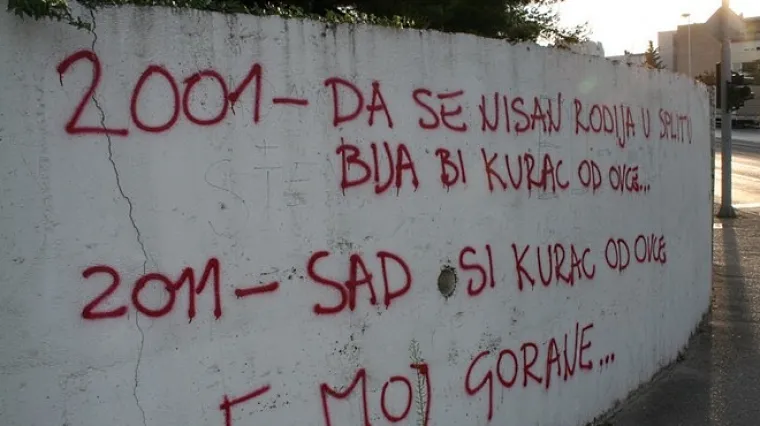 2001- DA SE NISAN RODIJA U SPLITU
BIJA BI KURAC OD OVCE...
2011- SAD SI KURAC OD OVCE
E MOJ GORANE...